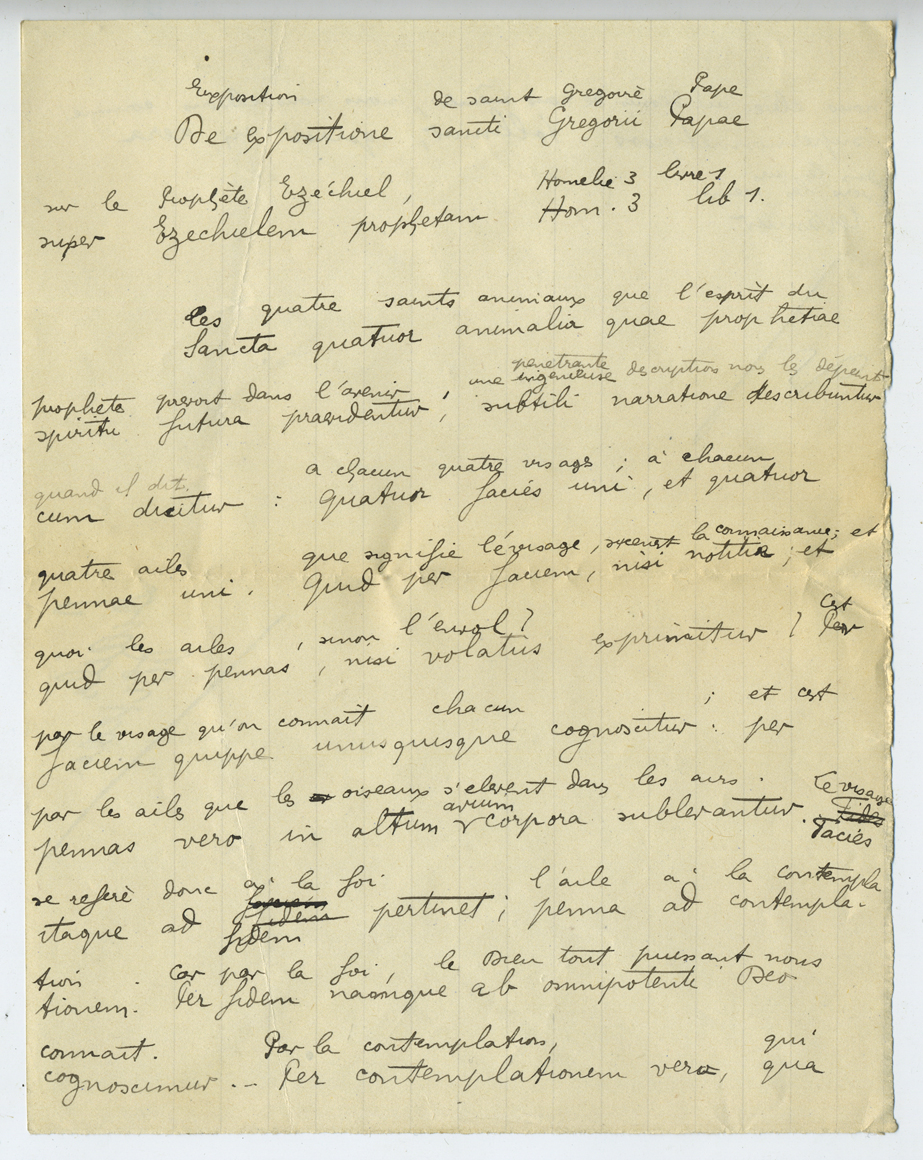 Exposition de saint Gregoire Pape
De expositione sancti Gregorii Papae
sur le Prophète Ezéchiel, Homelie 3 livre 1
super Ezechielem prophetam Hom. 3 lib 1.
les quatre saints animaux que l'esprit du
Sancta quatuor animalia quae prophetiae
pénétrante
prophète prévoit dans l'avenir, une ingénieuse description nous les dépeint
spiritu futura praevidentur, subtili narratione describuntur
quand il dit a chacun quatre visages ; à chacun
cum dicitur : Quatuor faciés uni, et quatuor
quatre ailes que signifie le visage, la connaissance; et
pennae uni. Quid per faciem, nisi notitia ; et
quoi les ailes, sinon l'envol ? Cest
quid per pennas, nisi volatus exprimitur ? Per
par le visage qu'on connait chacun ; et cest
faciem quippe unusquisque cognoscitur : per
par les ailes que les oiseaux s'elevent dans les airs. Le visage
avium Fides
pennas vero in altum corpora sublevantur. Faciés
se referè donc a' la foi l'aile a' la contempla
itaque ad faciem fidem pertinet ; penna ad contempla-
fidem
tion. Car par la foi, le Dieu tout puissant nous
tionem. Per fidem namque ab omnipotenti Deo
connait. Par la contemplation, qui
cognoscimur.-- Per contemplationem vero, qua